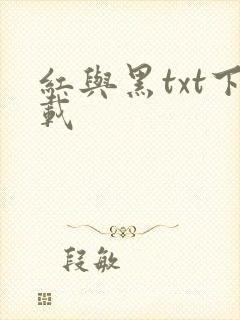 紅與黑txt下
載
段敏